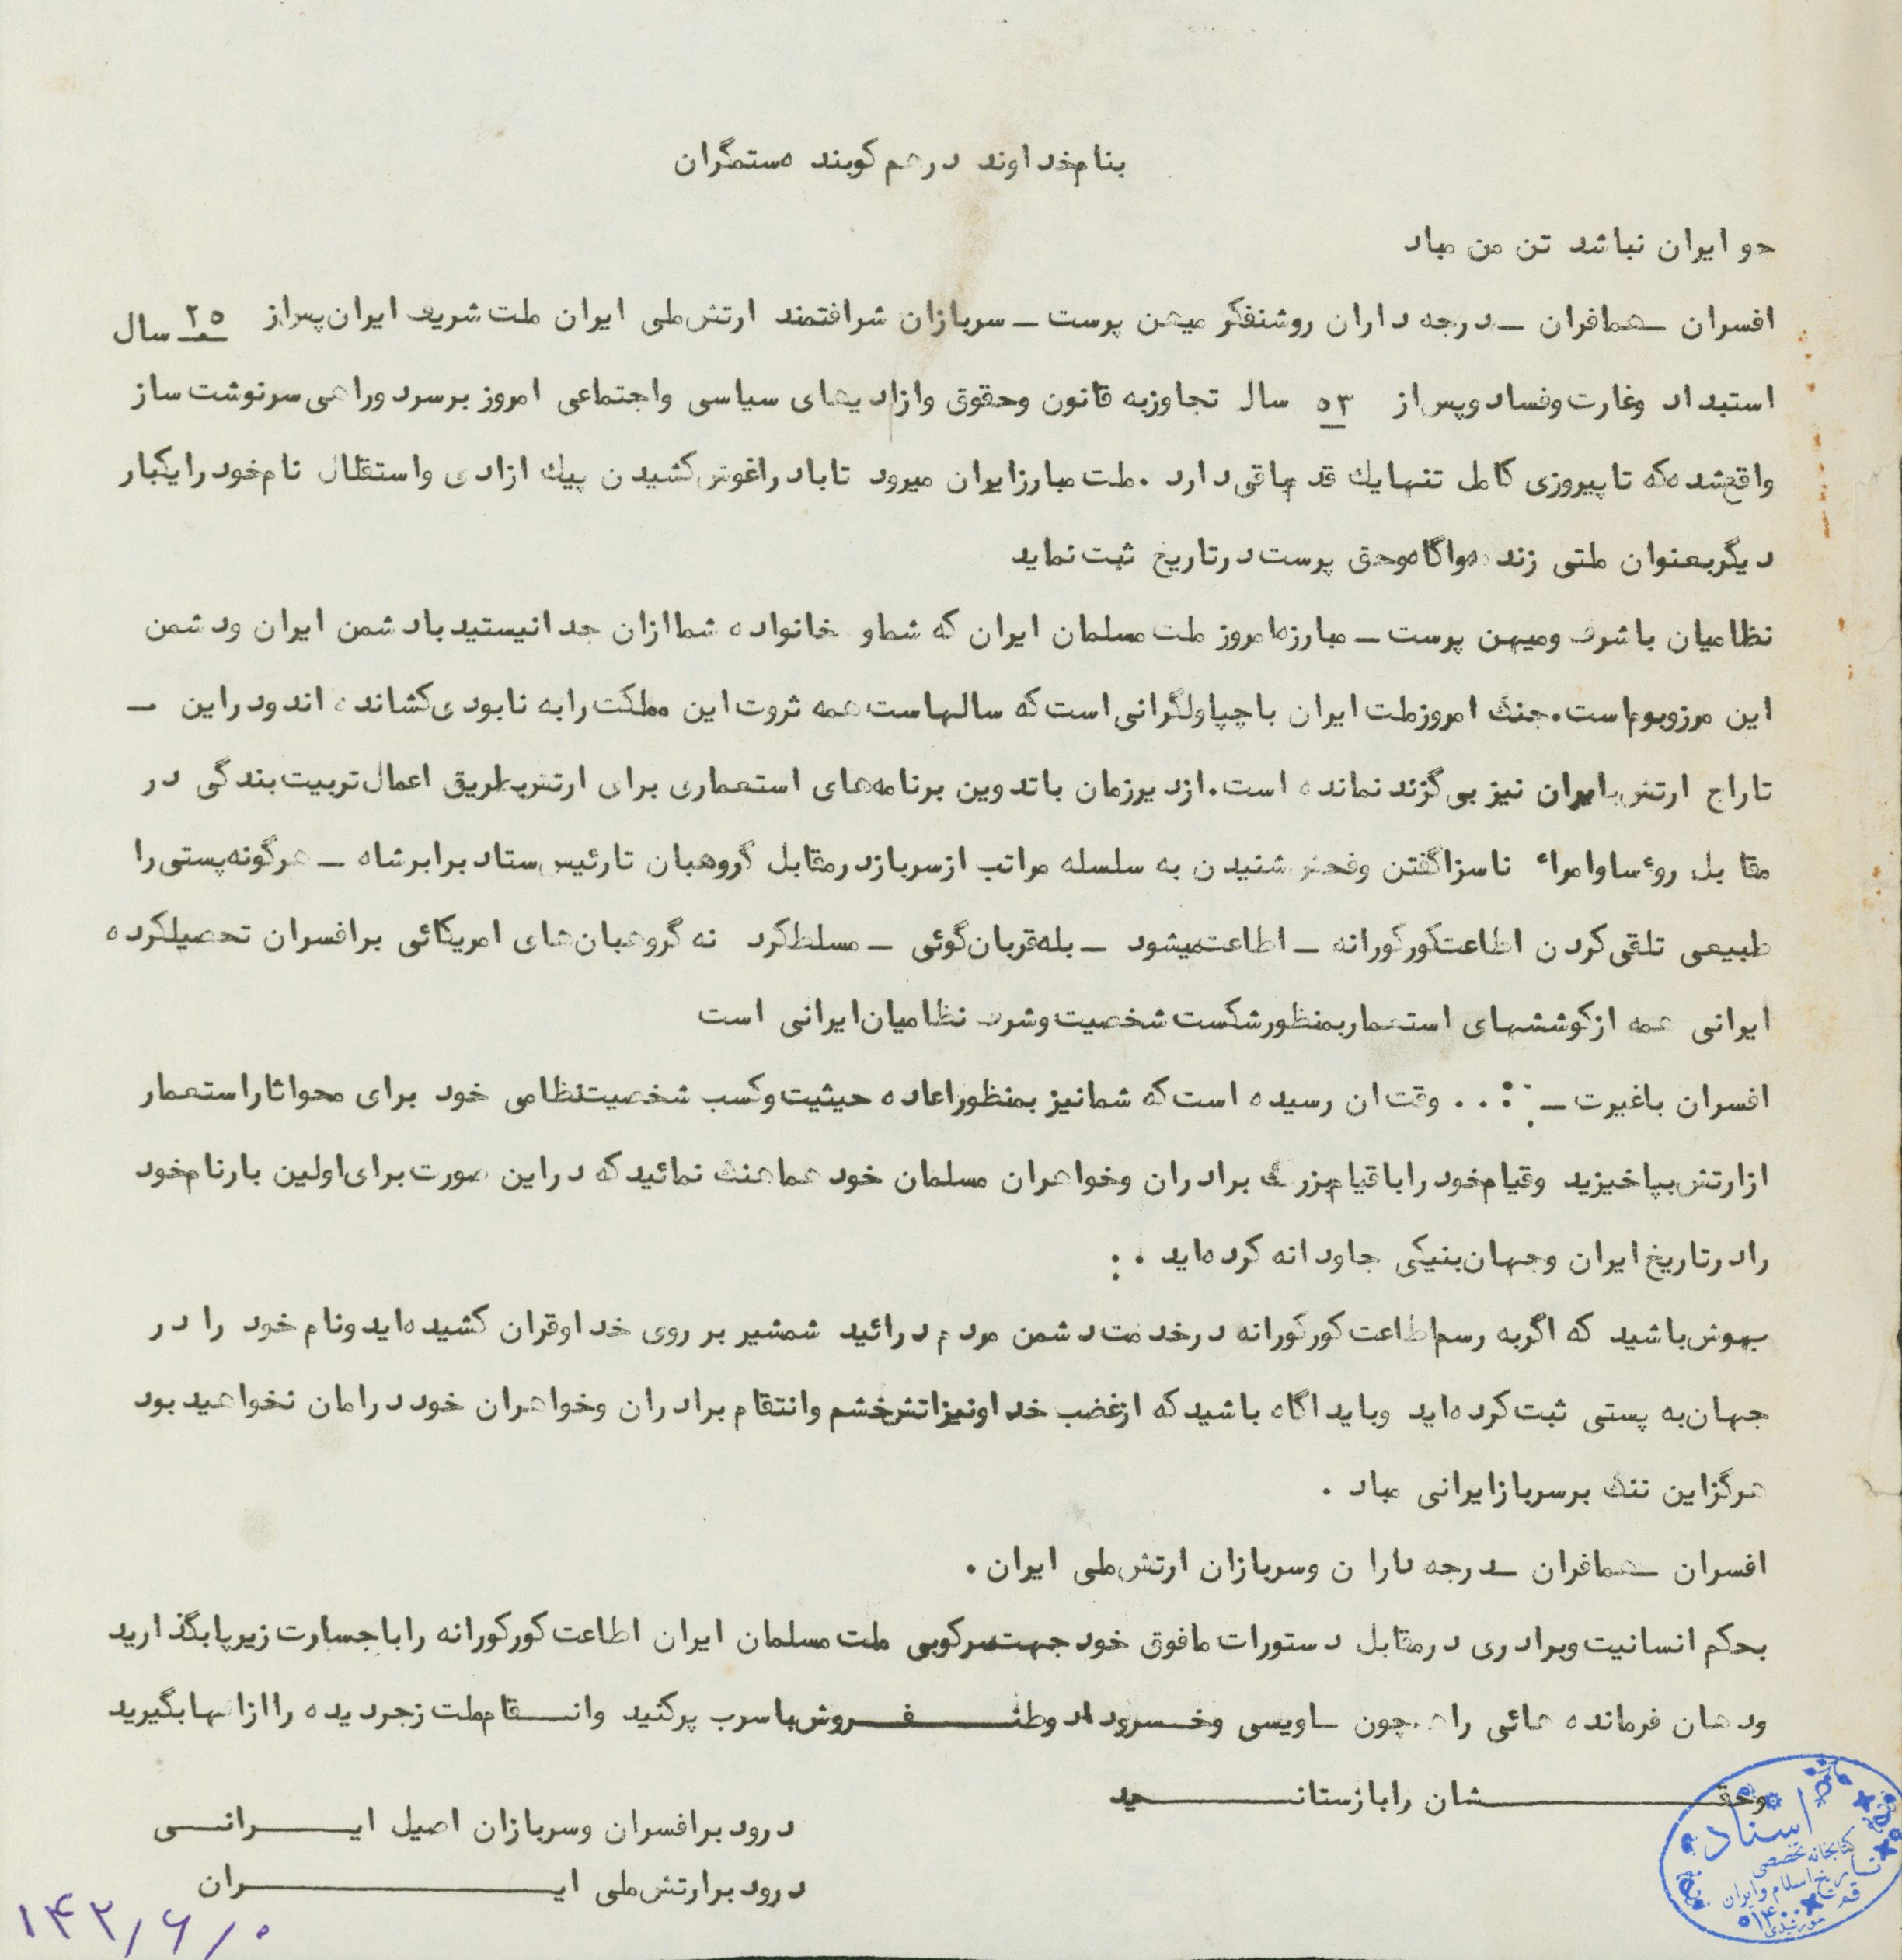 بنام خداوند درهم کوبنده ستمگران
چو ایران نباشد تن من مباد
افسران ـ همافران ـ درجه داران روشنفکر میهن پرست ـ سربازان شرافتمند ارتش ملی ایران ملت شریف ایران پس از ۲۵ سال
استبداد وغارت وفساد وپس از ۵۳ سال تجاوز به قانون وحقوق وازادیهای سیاسی واجتماعی امروز برسر دوراهی سرنوشت ساز
واقع شده که تا پیروزی کامل تنها یك قدم باقی دارد . ملت مبارز ایران میرود تا با دراغوش کشیدن پیك ازادی واستقلال نام خود را یکبار
دیگر بعنوان ملتی زنده واگاه وحق پرست در تاریخ ثبت نماید
نظامیان باشرف ومیهن پرست ـ مبارزه امروز ملت مسلمان ایران که شما و خانواده شما ازان جدا نیستید با دشمن ایران ودشمن
این مرزوبوم است . جنگ امروز ملت ایران با چپاولگرانی است که سالهاست همه ثروت این مملکت را به نابودی کشانده اند ودراین ـ
تاراج ارتش ایران نیز بی گزند نمانده است . از دیرزمان با تدوین برنامه های استعماری برای ارتش بطریق اعمال تربیت بندگی در
مقابل روٴسا وامراء ناسزا گفتن وفحش شنیدن به سلسله مراتب از سرباز درمقابل گروهبان تا رئیس ستاد برابر شاه ـ هرگونه پستی را
طبیعی تلقی کردن اطاعت کورکورانه ـ اطاعت میشود ـ بله قربان گوئی ـ مسلط کرد نه گروهبان های امریکائی برافسران تحصیلکرده
ایرانی همه از کوششهای استعمار بمنظور شکست شخصیت وشرف نظامیان ایرانی است
افسران باغیرت ـ . : . . وقت ان رسیده است که شما نیز بمنظور اعاده حیثیت وکسب شخصیت نظامی خود برای محو اثار استعمار
از ارتش بپاخیزید وقیام خود را با قیام بزرگ برادران وخواهران مسلمان خود هماهنگ نمائید که دراین صورت برای اولین بار نام خود
را در تاریخ ایران وجهان بنیکی جاودانه کرده اید . :
بهوش باشید که اگر به رسم اطاعت کورکورانه درخدمت دشمن مردم درائید شمشیر بر روی خدا وقران کشیده اید ونام خود را در
جهان به پستی ثبت کرده اید وباید اگاه باشید که از غضب خدا ونیز اتش خشم وانتقام برادران وخواهران خود درامان نخواهید بود
هرگز این ننگ بر سرباز ایرانی مباد .
افسران ـ همافران ـ درجه داران وسربازان ارتش ملی ایران .
بحکم انسانیت وبرادری درمقابل دستورات مافوق خود جهت سرکوبی ملت مسلمان ایران اطاعت کورکورانه را با جسارت زیر پا بگذارید
ودهان فرمانده هائی را همچون ـ اویسی وخسروداد وطنـــفـــروش با سرب پر کنید وانـــتقام ملت زجر دیده را ازانها بگیرید
وحقـــــــشان را بازستانـــــــید
درود بر افسران وسربازان اصیل ایـــــرانـــی
درود بر ارتش ملی ایـــــــــــــران
اسناد
کتابخانه تخصصی
تاریخ اسلام و ایران
قم
۱۴۲/۶/۰